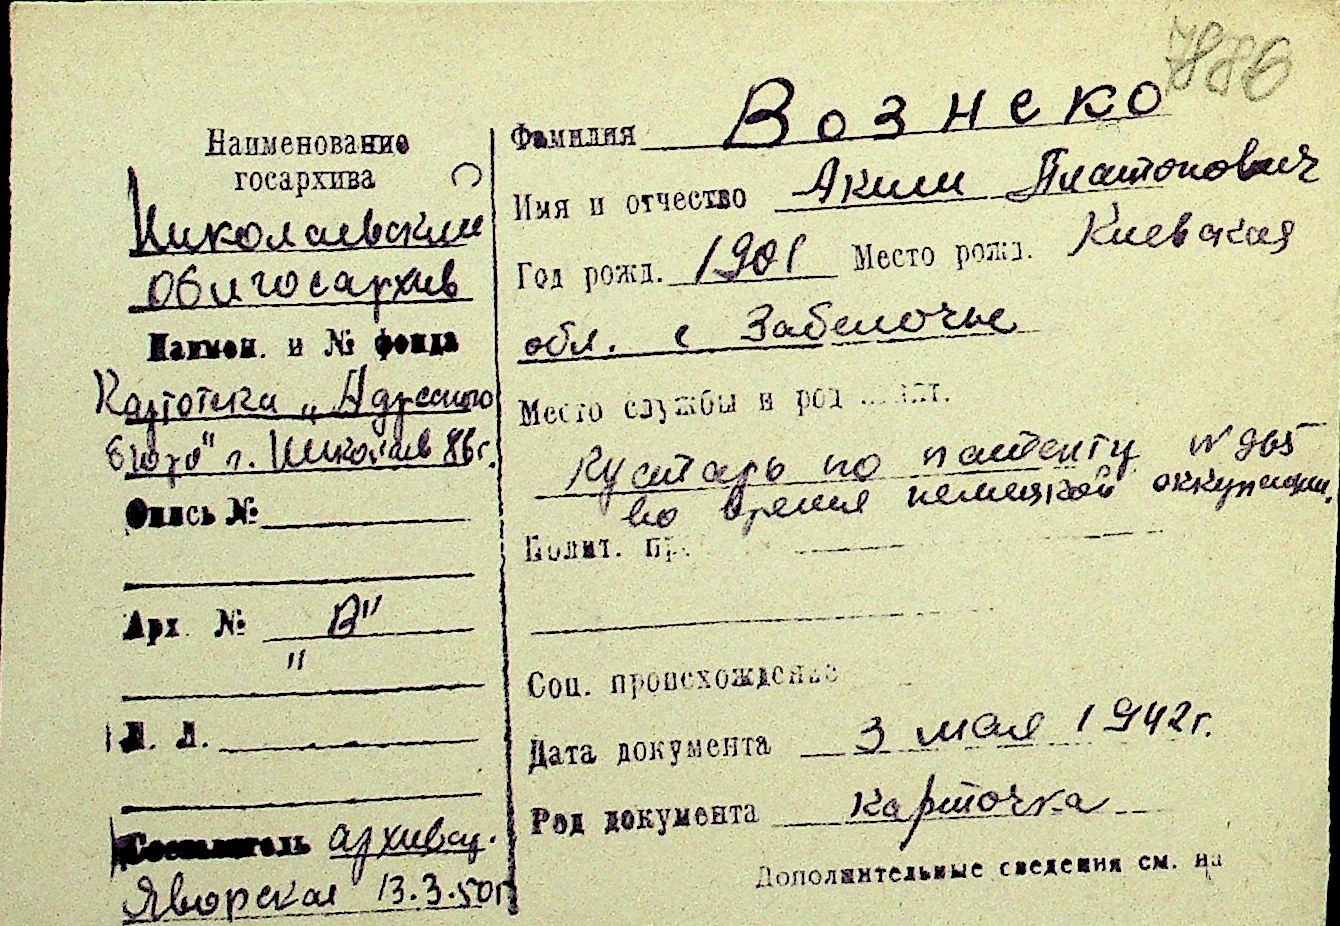 Наименование
госархива
Николаевский
облгосархив
Наимен. и № фонда
Картотека „Адресного
бюро" г. Николаев 86г.
Опись №
Арх. № „В"
Л. Л.
Составитель архивар.
Яворская 13.3.50г
Фамилия Вознеко
Имя и отчество Аким Платонович
Год рожд. 1901 Место рожд. Киевская
обл. с Забелочье
Место службы и род
Кустарь по патенту № 965
во время немецкой оккупации.
Полит.
Соц. происхождение
Дата документа 3 мая 1942г.
Род документа карточка
Дополнительные сведения см. на